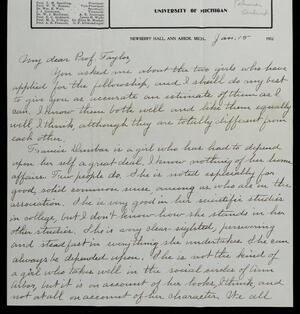 UNIVERSITY OF MICHIGAN
NEWBERRY HALL, ANN ARBOR, MICH., Jan. 15 190
My dear Prof. Taylor
You asked me about the two girls who have
applied for the fellowship, and I shall do my best
to give you as accurate an estimate of them as I
can. I know them both well and like them equally
well, I think, although they are totally different from
each other.
Francis Dunbar is a girl who has had to depend
upon her self a great deal. I know nothing of her home
affairs. Few people do. She is noted especially for
good, solid common sense, among us who are in the
association. She is very good in her scientific studies
in college, but I don't know how she stands in her
other studies. She is very clear-sighted, persevering
and steadfast in everything she undertakes. She can
always be depended upon. She is not the kind of
a girl who takes well in the social circles of Ann
Arbor, but it is on account of her looks, I think, and
not at all on account of her character. We all